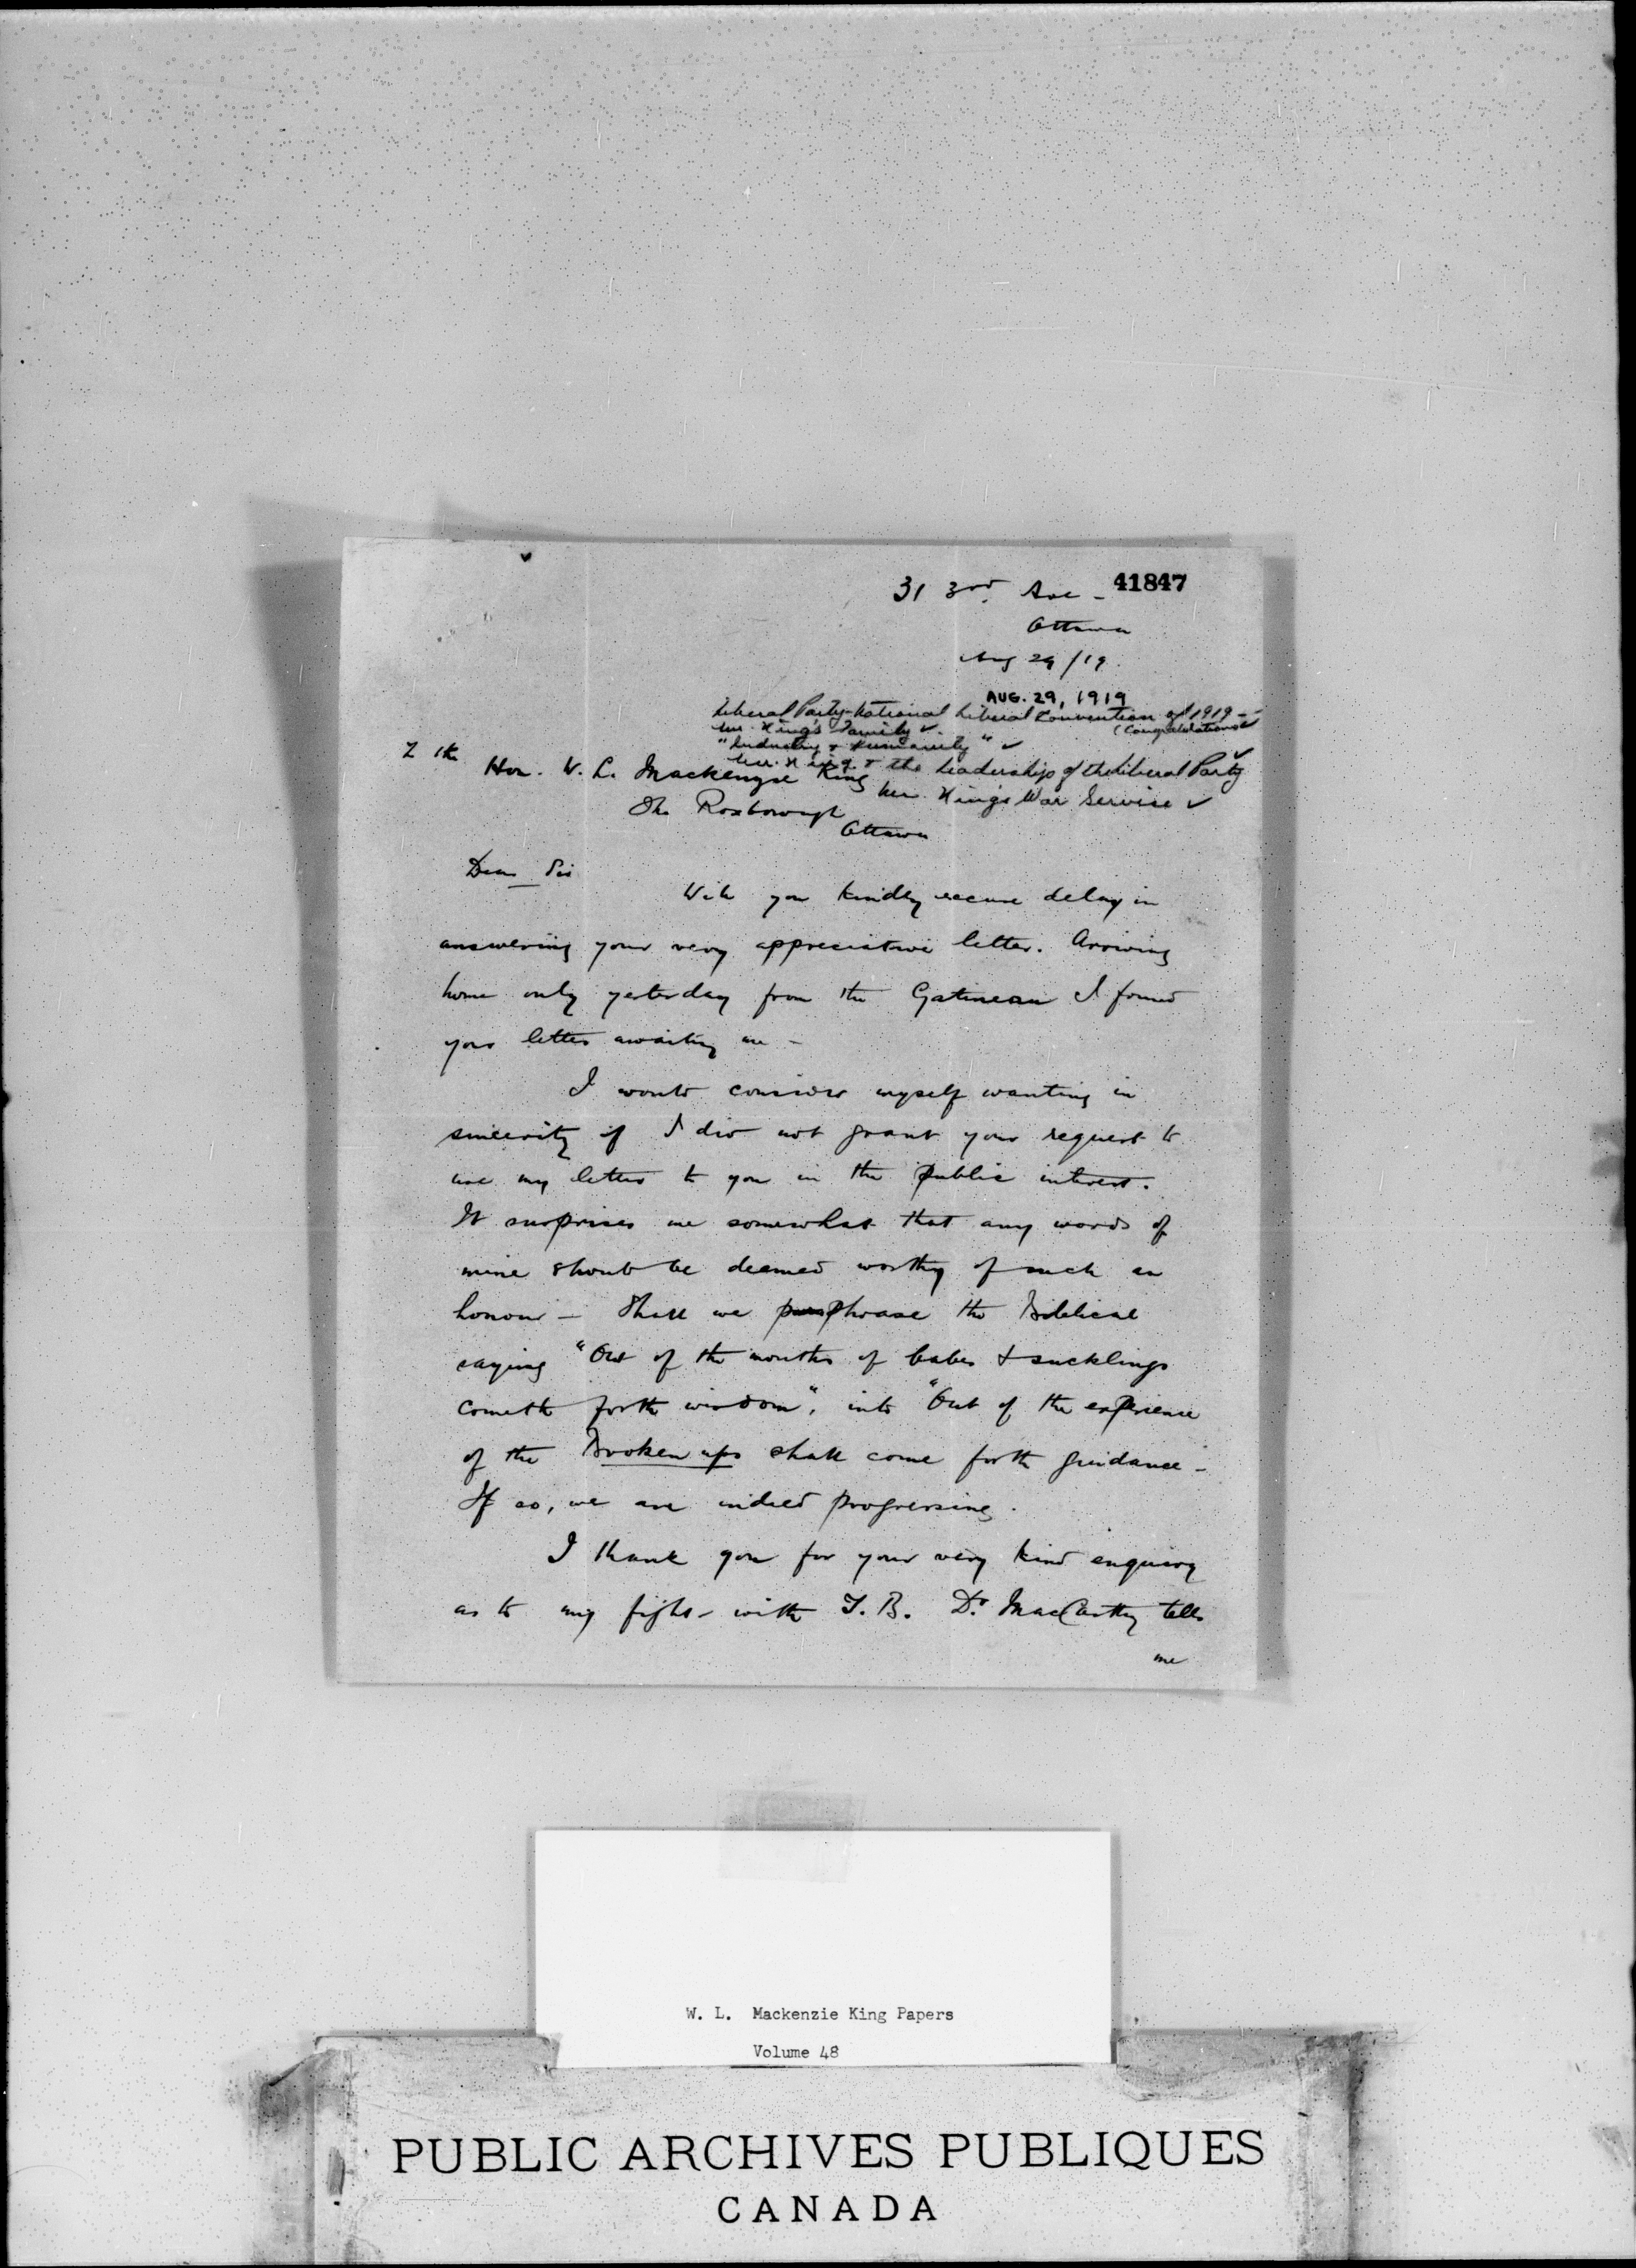 31 3rd. Ave - 41847
Ottawa
Aug 29/19.
AUG. 29, 1919
Liberal Party - National Liberal Convention of 1919 -
(Congratulations)
Mr. King's Family ✓
"Industry & Humanity" ✓
Mr. King & the Leadership of the Liberal Party ✓
Mr. King's War Service ✓
Hon. W. L. Mackenzie King
The Roxborough
Ottawa
Dear Sir
Will you kindly excuse delay in
answering your very appreciative letter. Arriving
home only yesterday from the Gatineau I found
your letter awaiting me -
I would consider myself wanting in
sincerity if I did not grant your request to
use my letter to you in the public interest.
It surprises me somewhat that any words of
mine should be deemed worthy of such an
honour - Shall we phrase the Biblical
saying "Out of the mouths of babes & sucklings
cometh forth wisdom", into "Out of the experience
of the Broken ups shall come forth guidance -
If so, we are indeed progressing.
I thank you for your very kind enquiry
as to my fight with T.B. Dr MacCarthy tells
me
W. L. Mackenzie King Papers
Volume 48
PUBLIC ARCHIVES PUBLIQUES
CANADA